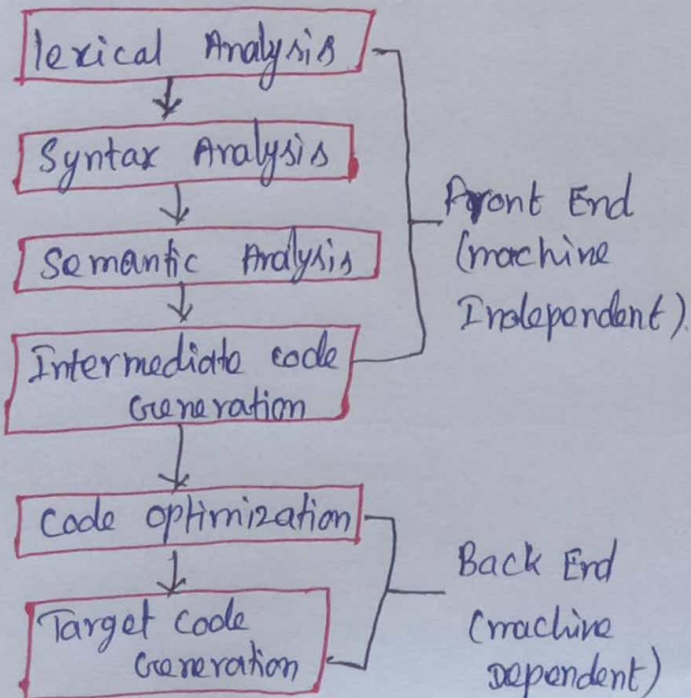 lexical Analysis
Syntax Analysis
Semantic Analysis
Intermediate code
Generation
Front End
(machine
Independent).
Code optimization
Target code
Generation
Back End
(machine
Dependent)